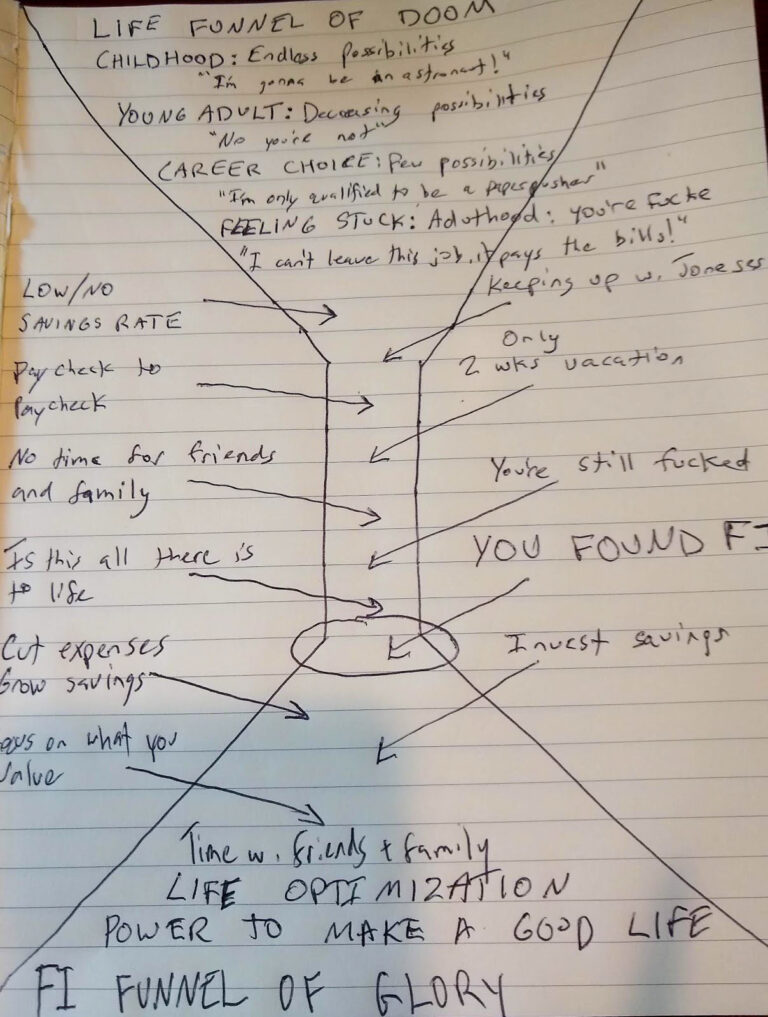 LIFE FUNNEL OF DOOM
CHILDHOOD: Endless possibilities
"I'm gonna be an astronaut!"
YOUNG ADULT: Decreasing possibilities
"No you're not"
CAREER CHOICE: Few possibilities
"I'm only qualified to be a paperpusher"
FEELING STUCK: Adulthood: you're Fucke
"I can't leave this job, it pays the bills!"
Keeping up w. Joneses
LOW/NO
SAVINGS RATE
Only
2 wks vacation
Paycheck to
Paycheck
No time for friends
and family
You're still fucked
YOU FOUND FI
Is this all there is
to life
Cut expenses
Grow savings
Invest savings
ocus on what you
Value
Time w. friends + family
LIFE OPTIMIZATION
POWER TO MAKE A GOOD LIFE
FI FUNNEL OF GLORY